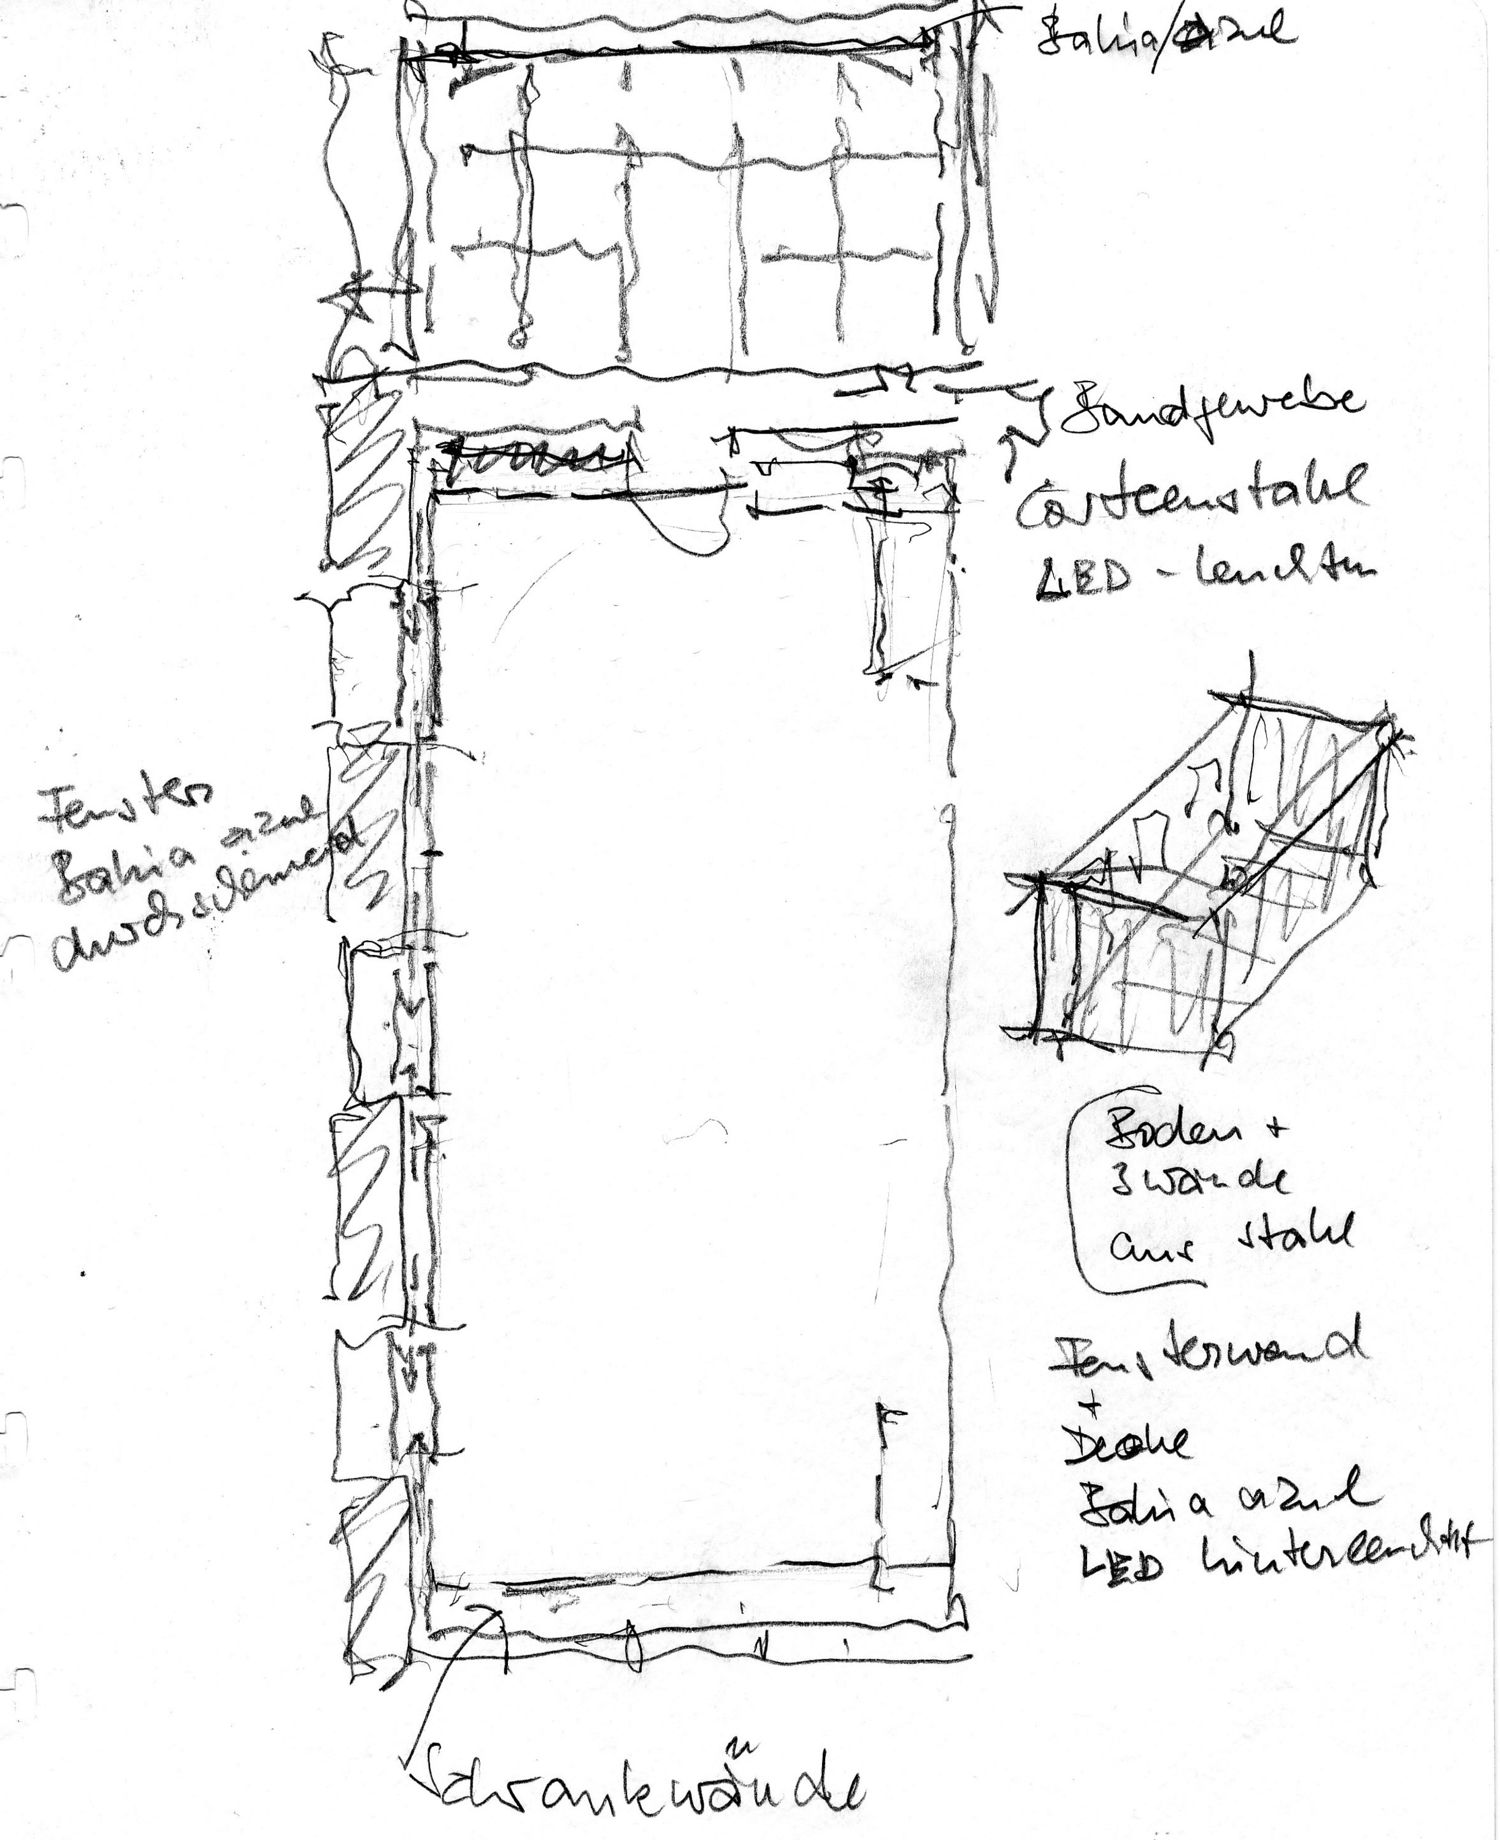 Bahia/azul
Bandgewebe
Corteenstahl
LED - leuchten
Fenster
Bahia azul
durchscheinend
Boden +
3 Wände
aus Stahl
Fensterwand
+
Decke
Bahia azul
LED hinterleuchtet
Schrankwände